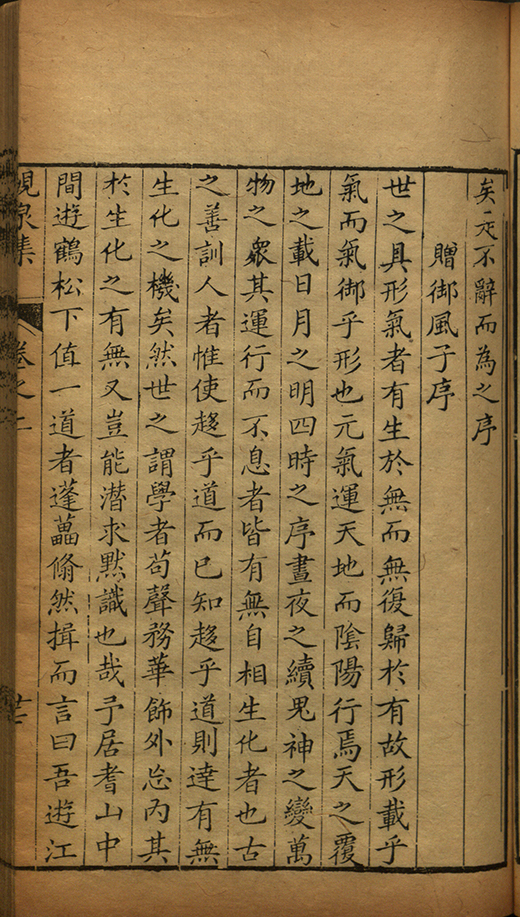 矣是不辭而為之序
贈御風子序
世之具形氣者有生於無而無復歸於有故形載乎
氣而氣御乎形也元氣運天地而陰陽行焉天之覆
地之載日月之明四時之序晝夜之續鬼神之變萬
物之衆其運行而不息者皆有無自相生化者也古
之善訓人者惟使趍乎道而已知趍乎道則達有無
生化之機矣然世之謂學者苟聲務華飾外忘內其
於生化之有無又豈能潛求默識也哉予居耆山中
間遊鶴松下值一道者蓬藟翛然揖而言曰吾遊江
峴泉集
卷之二